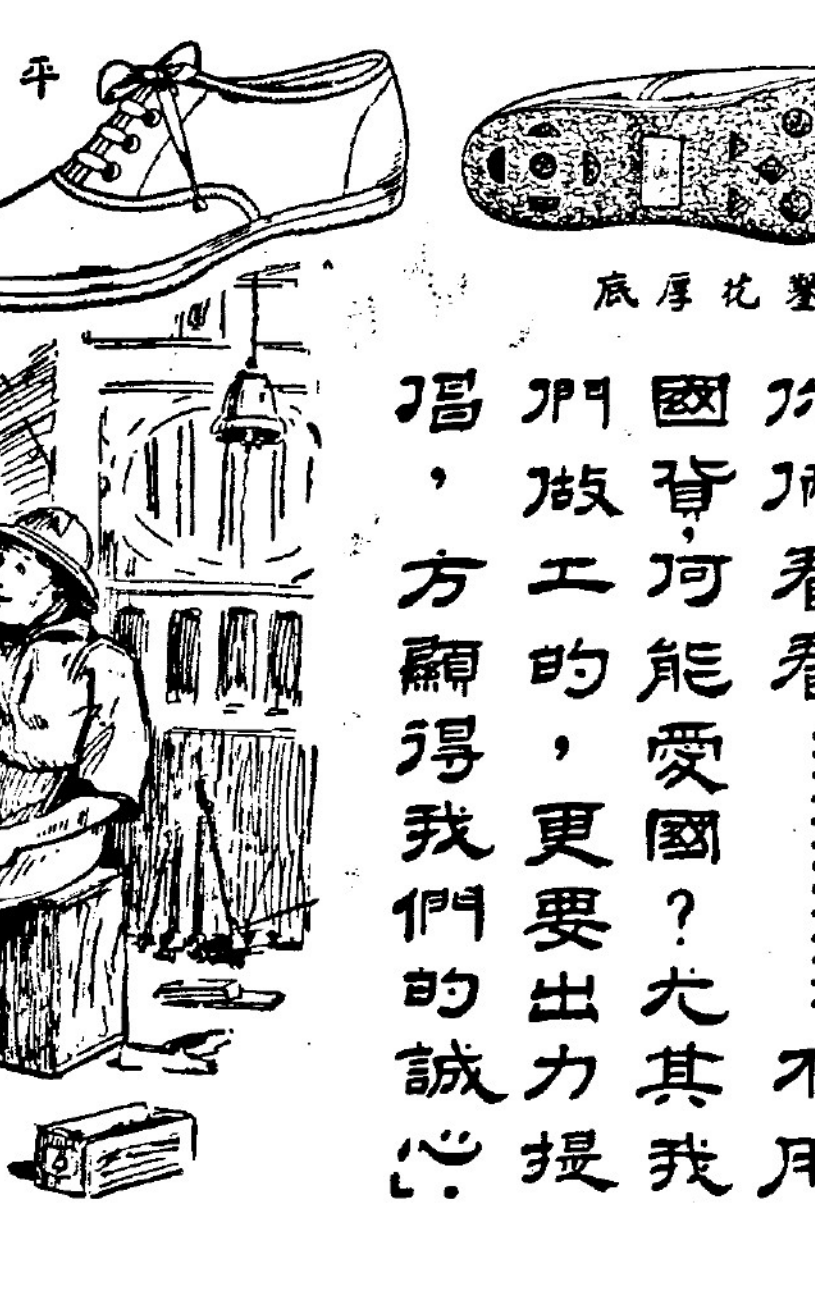 平
花厚底
看看……不用
國貨，何能愛國？尤其我
們做工的，更要出力提
倡，方顯得我們的誠心.」